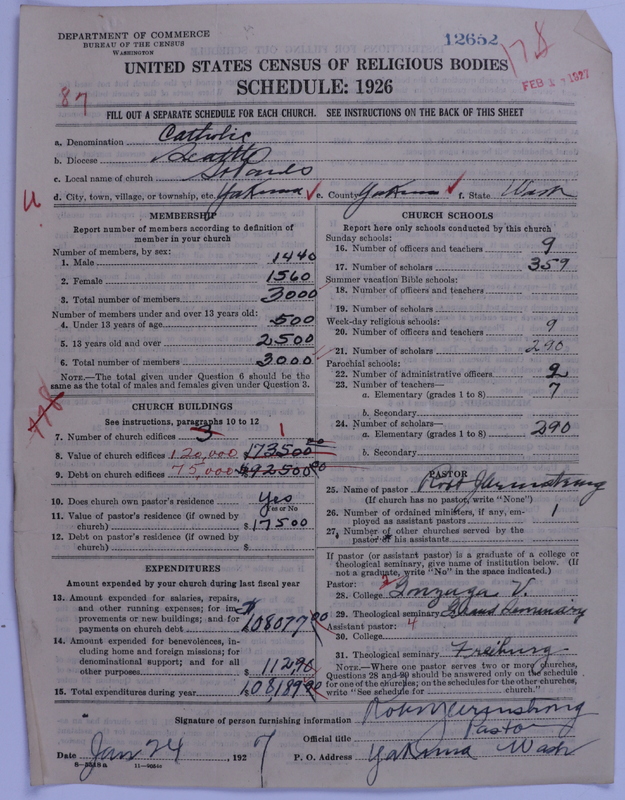 DEPARTMENT OF COMMERCE
BUREAU OF THE CENSUS
WASHINGTON
12652
178
FEB 17 1927
UNITED STATES CENSUS OF RELIGIOUS BODIES
SCHEDULE: 1926
87
FILL OUT A SEPARATE SCHEDULE FOR EACH CHURCH. SEE INSTRUCTIONS ON THE BACK OF THIS SHEET
a. Denomination Catholic
b. Diocese Seattle
c. Local name of church
d. City, town, village, or township, etc. Yakima e. County Yakima f. State Wash
MEMBERSHIP
Report number of members according to definition of
member in your church
Number of members, by sex:
1. Male 1440
2. Female 1560
3. Total number of members 3000
Number of members under and over 13 years old:
4. Under 13 years of age 500
5. 13 years old and over 2500
6. Total number of members 3000
NOTE.—The total given under Question 6 should be the
same as the total of males and females given under Question 3.
CHURCH BUILDINGS
See instructions, paragraphs 10 to 12
7. Number of church edifices 3 1
8. Value of church edifices 120,000 $173500 00
9. Debt on church edifices 75,000 $92500 00
10. Does church own pastor's residence Yes
Yes or No
11. Value of pastor's residence (if owned by
church) $17500
12. Debt on pastor's residence (if owned by
church) $
EXPENDITURES
Amount expended by your church during last fiscal year
13. Amount expended for salaries, repairs,
and other running expenses; for im-
provements or new buildings; and for
payments on church debt $108077 00
14. Amount expended for benevolences, in-
cluding home and foreign missions; for
denominational support; and for all
other purposes $ 112.90
15. Total expenditures during year 108,189.90
CHURCH SCHOOLS
Report here only schools conducted by this church
Sunday schools:
16. Number of officers and teachers 9
17. Number of scholars 359
Summer vacation Bible schools:
18. Number of officers and teachers
19. Number of scholars
Week-day religious schools:
20. Number of officers and teachers 9
21. Number of scholars 290
Parochial schools:
22. Number of administrative officers 2
23. Number of teachers—
a. Elementary (grades 1 to 8) 7
b. Secondary
24. Number of scholars—
a. Elementary (grades 1 to 8) 290
b. Secondary
PASTOR
25. Name of pastor Robt J Armstrong
(If church has no pastor, write "None")
26. Number of ordained ministers, if any, em-
ployed as assistant pastors 1
27. Number of other churches served by the
pastor or his assistants
If pastor (or assistant pastor) is a graduate of a college or
theological seminary, give name of institution below. (If
not a graduate, write "No" in the space indicated.)
Pastor:
28. College Gonzaga U.
29. Theological seminary Grand Seminary
Assistant pastor: 4
30. College
31. Theological seminary Freiburg
NOTE.—Where one pastor serves two or more churches,
Questions 28 and 30 should be answered only on the schedule
for one of the churches; on the schedules for the other churches,
write "See schedule for church."
Signature of person furnishing information Robt J Armstrong
Official title Pastor
Date Jan 24, 1927 P. O. Address Yakima Wash